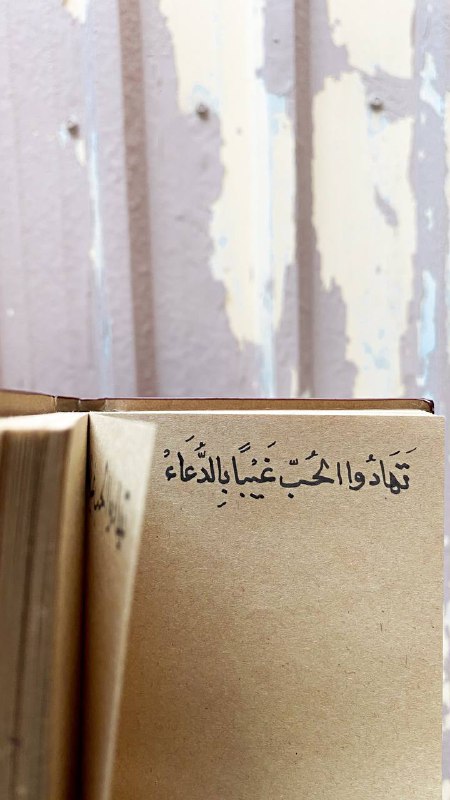 تَهَادُوا الحُبّ غَيْبًا بِالدُّعَاءْ